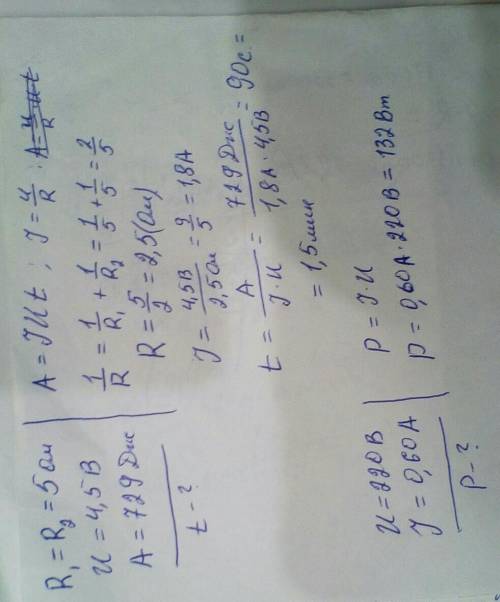 R₁ = R₂ = 5 Ом
U = 4,5 В
A = 729 Дж
t - ?
A = JUt ; J = U/R ;
1/R = 1/R₁ + 1/R₂ = 1/5 + 1/5 = 2/5
R = 5/2 = 2,5 (Ом)
J = 4,5В/2,5Ом = 9/5 = 1,8А
t = A/J·U = 729Дж/1,8А·4,5В = 90с =
= 1,5мин
U = 220В
J = 0,60А
P - ?
P = JU
P = 0,60А·220В = 132Вт